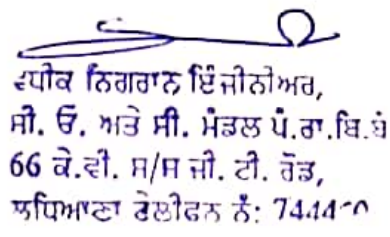 ਵਧੀਕ ਨਿਗਰਾਨ ਇੰਜੀਨੀਅਰ,
ਸੀ. ਓ. ਅਤੇ ਸੀ. ਮੰਡਲ ਪੰ.ਰਾ.ਬਿ.ਬੋ
66 ਕੇ.ਵੀ. ਸ/ਸ ਜੀ. ਟੀ. ਰੋਡ,
ਲੁਧਿਆਣਾ ਟੇਲੀਫਨ ਨੰ: